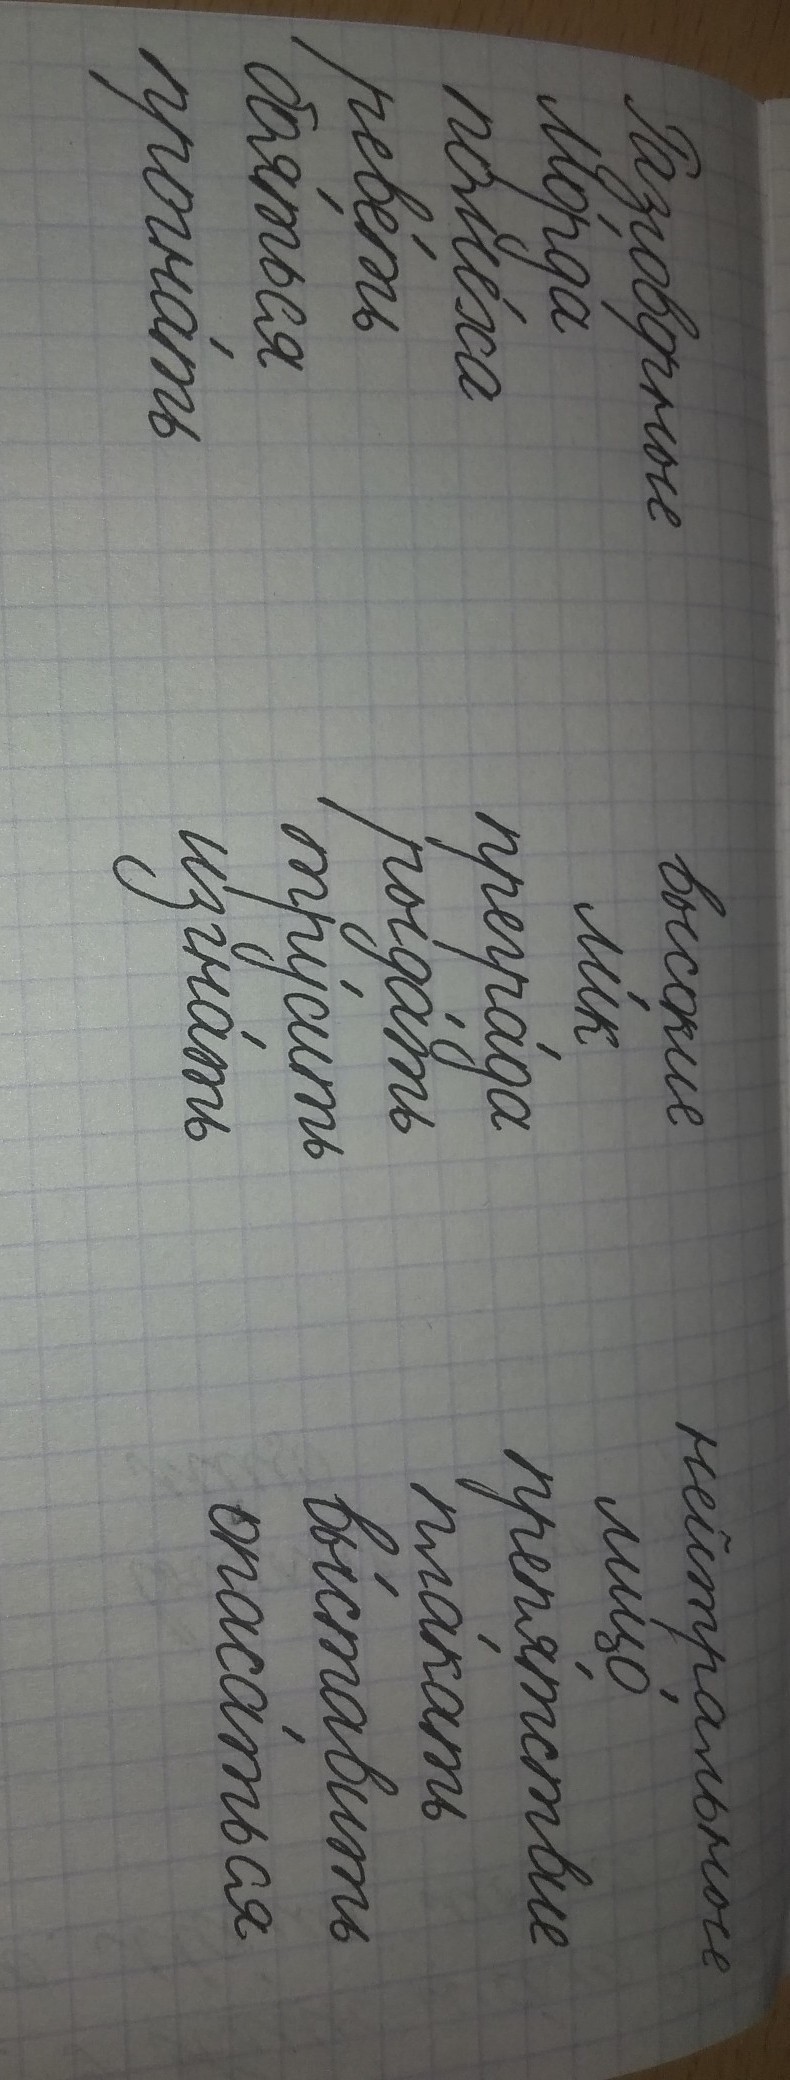 Разговорные высокие нейтра́льные
мо́рда ли́к лицо́
поме́ха прегра́да препя́тствие
реве́ть рыда́ть пла́кать
боя́ться тру́сить вы́ставить
прогна́ть изгна́ть опаса́ться